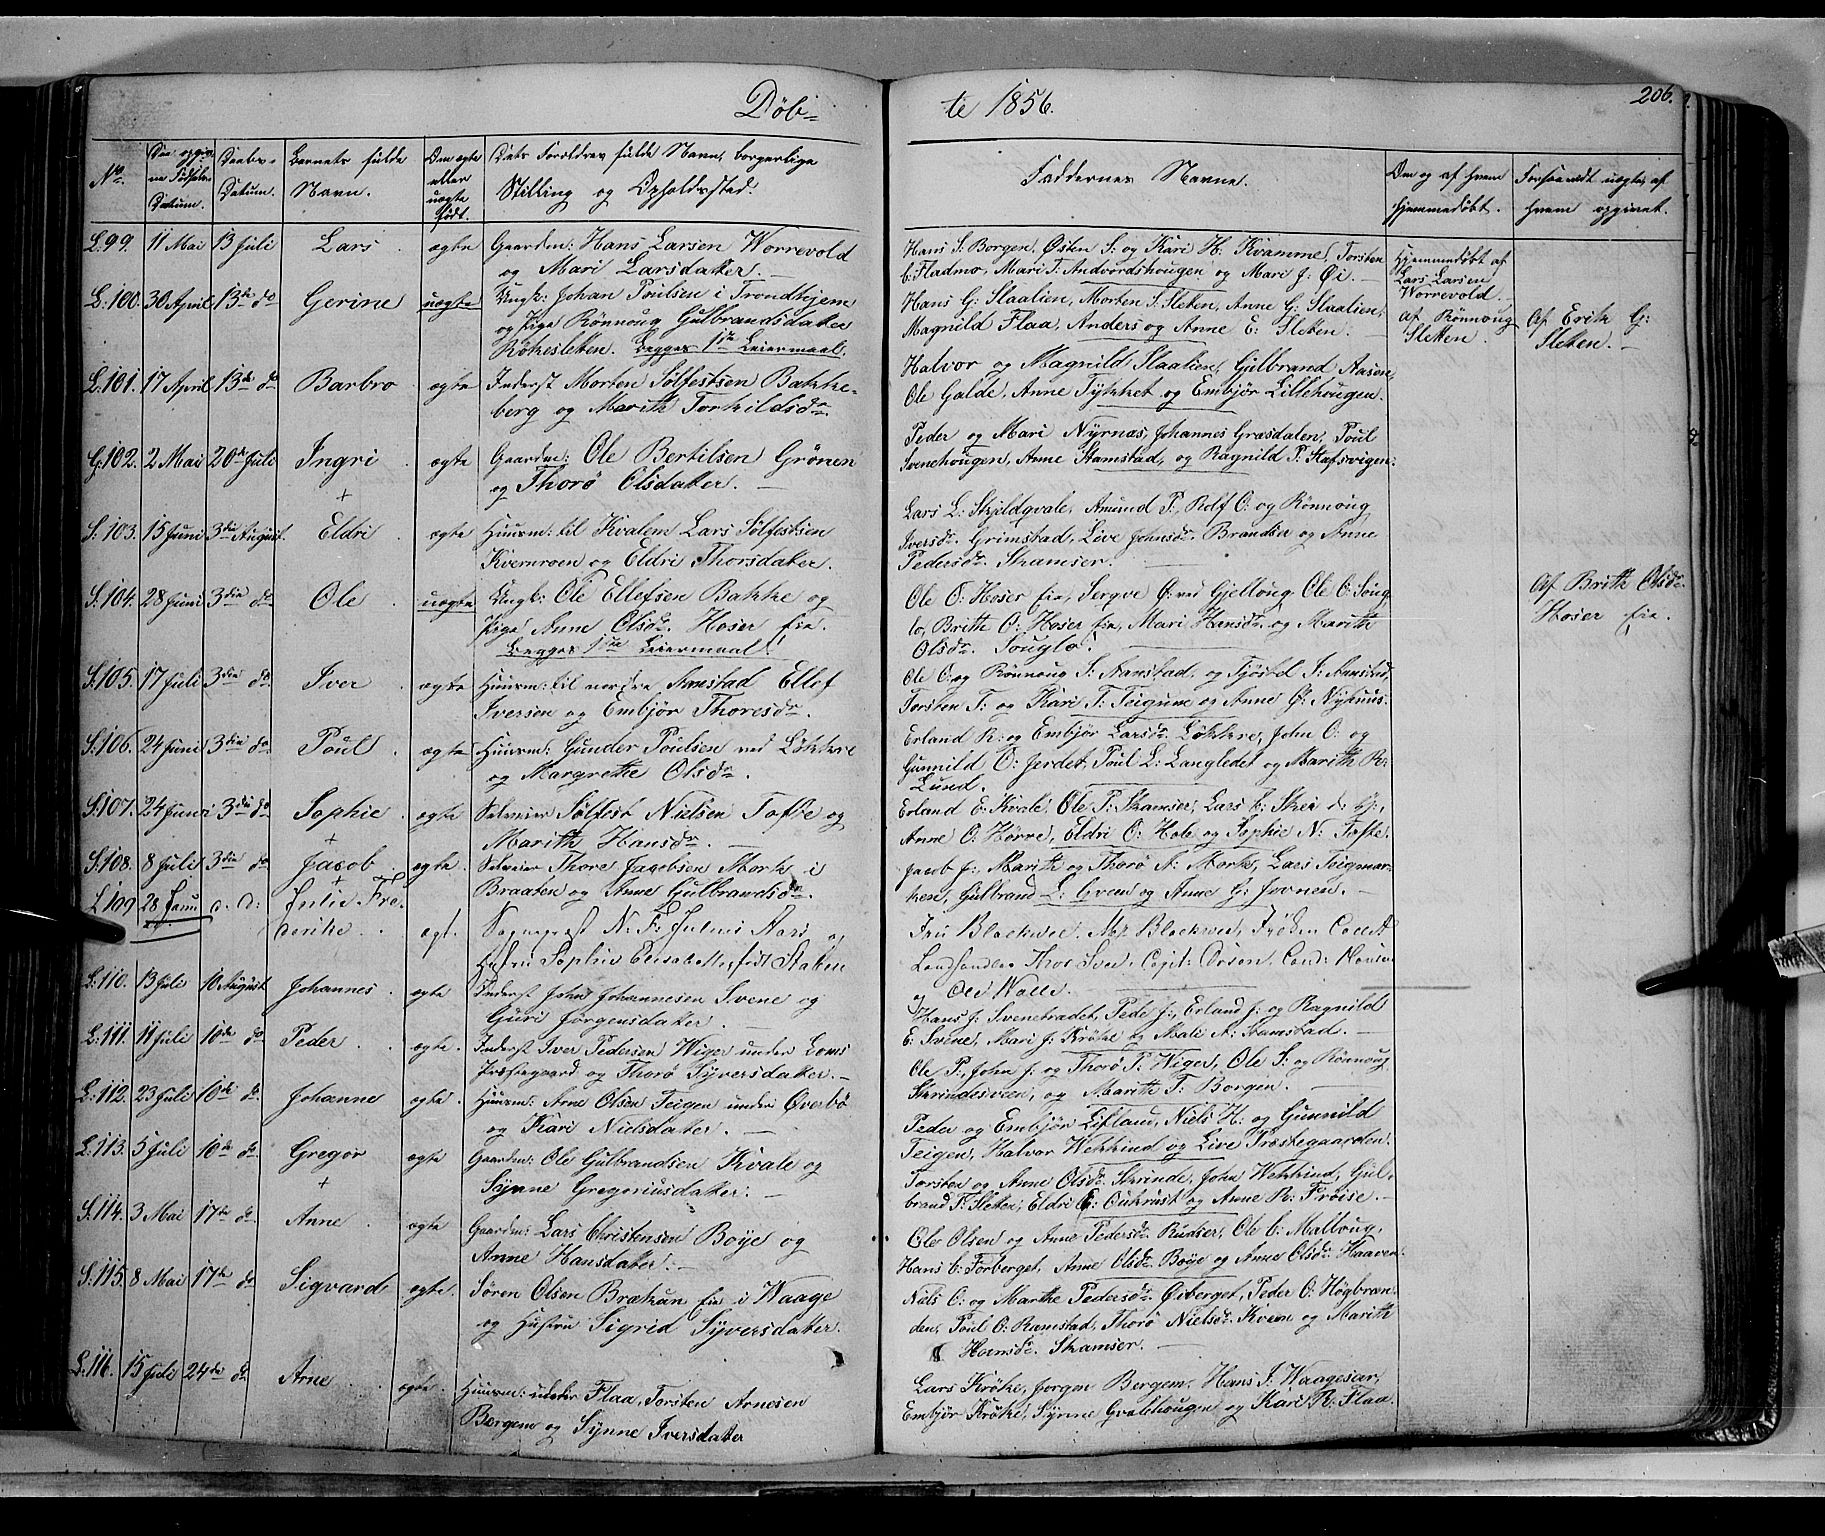 Døb-
te 1856.
206.
No.
Den opgiv-
ne Fødsels-
Datum.
Daabs-
Datum.
Barnets fulde
Navn.
Om ægte
eller
uægte
født.
Dets Forældres fulde Navn, borgerlige
Stilling og Opholdssted.
Faddernes Navne.
Om og af hvem
hjemmedøbt.
Forsaavidt uægte, af
hvem opgivet.
L: 99. 11 Mai 13 Juli Lars. ægte Gaardm: Hans Larsen Worrevold
og Mari Larsdatter. —
Hans S: Borgen, Østen S: og Kari H: Kvamme, Torsten
E: Fladmo, Mari T: Andvordshougen og Mari J: Øi. —
Hjemmedøbt af
Lars Larsen
Worrevold.
L: 100. 30 April 13de do Gerine uægte Ungk: Johan Poulsen i Trondhjem
og Pige Rønnoug Gulbrandsdatter
Røkesletten. Begges 1ste Leiermaal.
Hans G: Slaalien, Morten S: Sletten, Anne G: Slaalien,
Magnild Flaa, Anders og Anne E: Sletten.
af Rønnoug
Sletten.
Af Erik G:
Sletten. —
L: 101. 17 April 13de do Barbro ægte Inderst Morten Sølfestsen Bakke-
berg og Marith Torkildsdr.
Halvor og Magnild Slaalien, Gulbrand Aasen,
Ole Galde, Anne Tykket og Embjør Lillehougen.
G: 102. 2 Mai 20de Juli Ingri ægte Gaardm: Ole Bertilsen Grønen
og Thorø Olsdatter. —
Peder og Mari Nyrnæs, Johannes Græsdalen, Poul
Svenehougen, Anne Stamstad, og Ragnild P: Stafsvigen.
S: 103. 15 Juni 3die August. Eldri. ægte Huusm: til Kvalem Lars Sølfestsen
Kvernroen og Eldri Thorsdatter.
Lars L: Skjeldqvale, Amund P:, Rolf O: og Rønnoug
Iversdr. Grimstad, Live Johnsdr. Brandser og Anne
Pedersdr. Skamser. —
S: 104. 28 Juni 3die do Ole. uægte Ungk: Ole Ellefsen Bakke og
Pige Anne Olsdr. Hoser eie.
Begges 1ste Leiermaal!
Ole O: Hoser eie, Sergve Ø: ved Gjeltoug, Ole O: Soug-
lo, Brith O: Hoser eie, Mari Hansdr. og Marith
Olsdr. Souglo. —
Af Brith Olsdr.
Hoser eie.
S: 105. 17 Juli 3die do Iver. ægte Huusm: til nordre Aanstad Ellef
Iversen og Embjør Thoresdr.
Ole O: og Rønnoug S: Aanstad, og Tjøstel I: Aanstad,
Torsten T: og Kari T: Teigum og Anne Ø: Nyhuus.
S: 106. 24 Juni 3die do Poul. ægte Huusm: Gunder Poulsen ved Løkkre
og Margrethe Olsdr.
Erland R: og Embjør Larsdr. Løkkre, John O: og
Gunnild O: Jerdet, Poul L: Langledet og Marith R:
Lund.
S: 107. 24 Juni 3die do Sophie. ægte Selveier Sølfest Nielsen Tofte og
Marith Hansdr. —
Erland E: Kvale, Ole P: Skamser, Lars E: Skei
Anne O: Hørre, Eldri O: Hole og Sophie N: Tofte.
S: 108. 8 Juli 3die do Jacob. ægte Selveier Thore Jacobsen Mork i
Braaten og Anne Gulbrandsdr.
Jacob J: Marith og Thorø A: Mork, Lars Teigmar-
ken, Gulbrand L: Sveen og Anne G: Jovnen. —
L: 109 28 Janu. d. D: Julie Fre-
derikke. ægt. Sogneprest N. F. Julius Aars og
Hustru Sophie Elisabeth, født Staben
Fru Blackwee. Mr. Blackwee, Frøken Colett
Landhandler Thor Svee. Capit: Orson, Cand:
og Ole Walle.
L: 110. 13 Juli 10 August Johannes. ægte Inderst John Johannesen Svene og
Guri Jørgensdatter. —
Hans J: Svenetrædet, Peder J:, Erland J: og Ragnild
E: Svene, Mari J: Krøke og Mali A: Stamstad. —
L: 111. 11 Juli 10de do Peder. ægte. Inderst Iver Pedersen Wiger under Loms
Præstegaard og Thorø Syversdatter. —
Ole P:, John J: og Thorø P: Wiger, Ole S: og Rønnoug
Skrindesveen, og Marith T: Borgen. —
L: 112. 23 Juli 10de do. Johanne ægte. Huusm: Arne Olsen Teigen under Øverbø
og Kari Nielsdatter. —
Peder og Embjør Lifland, Niels H: og Gunnild
Teigen, Halvor Wekkind og Live Præstegaarden.
L: 113. 5 Juli 10de do Gregor ægte Gaardm: Ole Gulbrandsen Kvale og
Synne Gregoriusdatter. —
Torsten og Anne Olsdr. Skrinde, John Wekkind, Gul-
brand T: Sletten, Eldri E: Oukrust og Anne R: Frøise. —
S: 114. 3 Mai 17de do. Anne. ægte Gaardm: Lars Christensen Bøye og
Anne Hansdatter. —
Ole Olsen og Anne Pedersdr. Rudser, Ole C: Malloug,
Hans C: Forberget, Anne Olsdr. Bøye og Anne Olsdr. Haaven.
S: 115. 8 Mai 17de do Sigvard ægte. Søren Olsen Brækun eie i Waage
og Hustru Sigrid Syversdatter.
Niels O: og Marthe Pedersdr. Øiberget, Peder O: Høgbran-
den, Poul O: Ramstad, Thorø Nielsdr. Kveen og Marith
Hansdr. Skamser. —
L: 116. 15 Juli 24de do Arne. ægte. Huusm: under Flaa, Torsten Arnesen
Bergem og Synne Iversdatter
Lars Krøke, Jørgen Bergem, Hans J: Waagesar,
Embjør Krøke, Synne Gvalehougen og Kari R: Flaa.